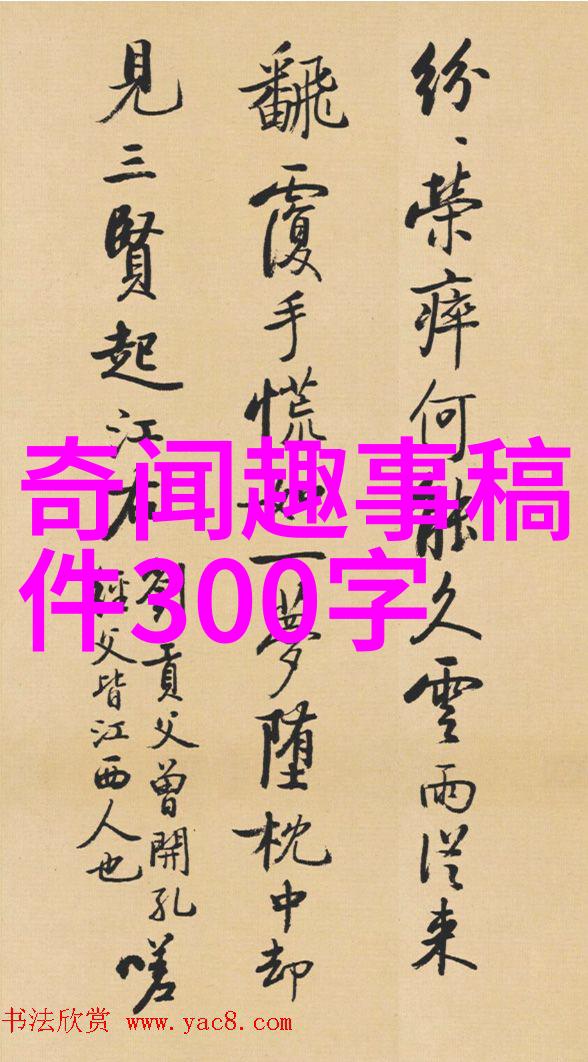 紛、榮瘁何能久雲雨從来
飜覆手慌如一夢墮枕中却
見三賢起江右
劉貢父曾開孔
經父皆江西人也
嗟
奇闻趣事稿
件300字
书法欣赏 www.yac8.com